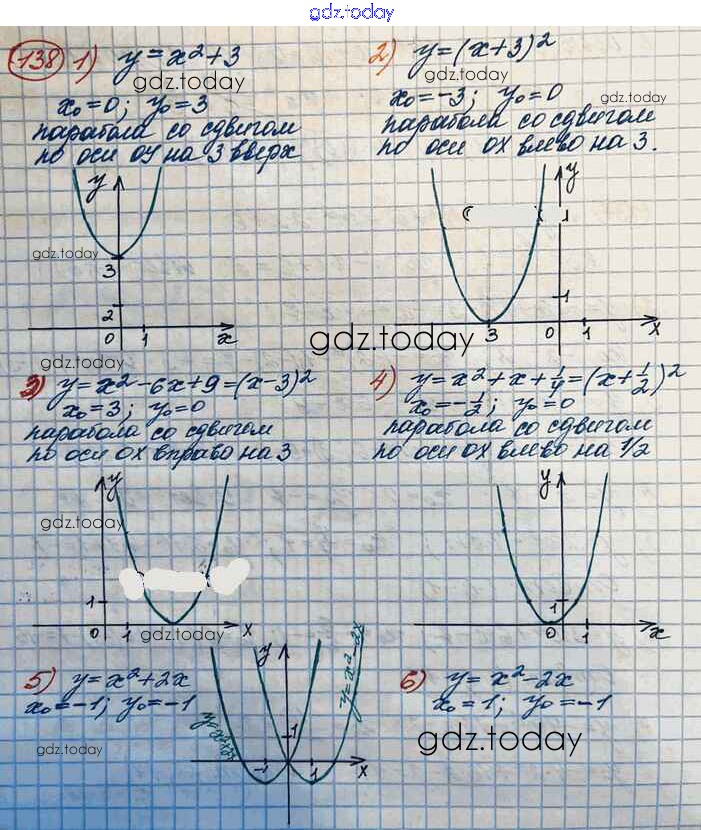 gdz.today
138 1) y = x² + 3
gdz.today
x₀ = 0; y₀ = 3
парабола со сдвигом
по оси OY на 3 вверх
2) y = (x + 3)²
gdz.today
x₀ = -3; y₀ = 0
gdz.today
парабола со сдвигом
по оси OX влево на 3.
y
gdz.today
3
2
0 1 x
y
1
1
3 0 1 x
gdz.today
gdz.today
3) y = x² - 6x + 9 = (x - 3)²
x₀ = 3; y₀ = 0
парабола со сдвигом
по оси OX вправо на 3
4) y = x² + x + 1/4 = (x + 1/2)²
x₀ = -1/2; y₀ = 0
парабола со сдвигом
по оси OX влево на 1/2
y
gdz.today
1
0 1 gdz.today x
y
1
0 1 x
5) y = x² + 2x
x₀ = -1; y₀ = -1
gdz.today
y
y = x² + 2x
y = x² - 2x
1
-1 1 x
6) y = x² - 2x
x₀ = 1; y₀ = -1
gdz.today